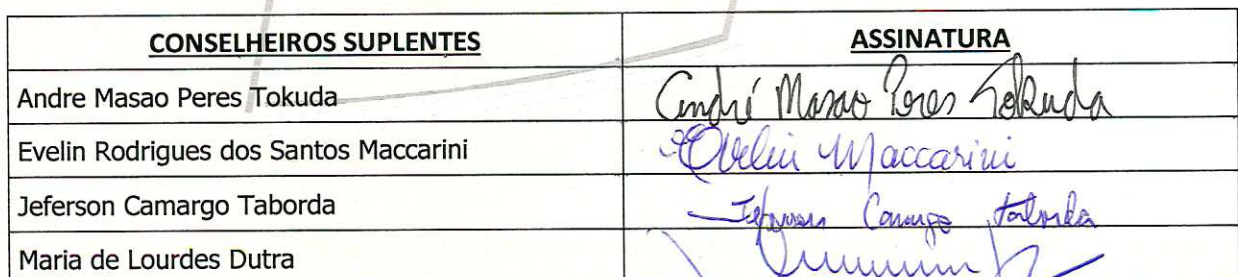 CONSELHEIROS SUPLENTES ASSINATURA
Andre Masao Peres Tokuda André Masao Peres Tokuda
Evelin Rodrigues dos Santos Maccarini Evelin Maccarini
Jeferson Camargo Taborda Jeferson Camargo Taborda
Maria de Lourdes Dutra